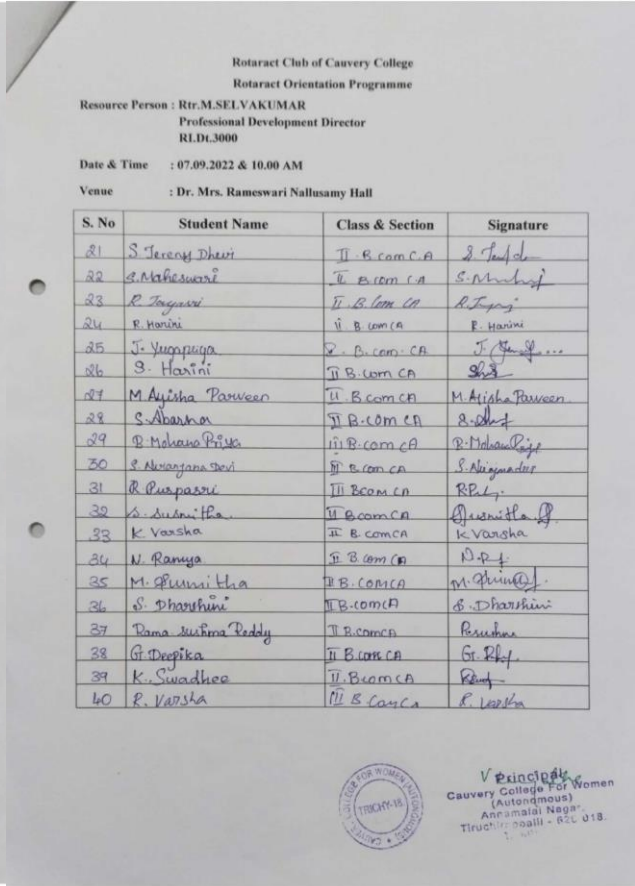 Rotaract Club of Cauvery College
Rotaract Orientation Programme
Resource Person : Rtr.M.SELVAKUMAR
Professional Development Director
RI.Dt.3000
Date & Time : 07.09.2022 & 10.00 AM
Venue : Dr. Mrs. Rameswari Nallusamy Hall
S. No Student Name Class & Section Signature
21 S. Tereny Dhevi II . B.com C.A
22 S. Maheswari II B.com C.A
23 R. II . B.Com CA
24 R. Harini II B com CA R. Harini
25 J. Yugapriya B.com. CA J.
26 S. Harini II B.com CA
27 M Ayisha Parveen II . B.com CA M. Ayisha Parveen
28 S. Abarna II B.com CA
29 B. Mohana Priya III B.com CA B. Mohana Priya
30 S. Niranjana Devi B.com CA
31 R III Bcom CA
32 S. Susmitha. II B com CA
33 K Varsha II B. comCA K Varsha
34 N. Ramya II B com CA
35 M. II B. COMCA
36 S. Dharshini II B.comCA S. Dharshini
37 Rama Sushma Reddy II B.comCA
38 G. Deepika II B.com CA
39 K. Swadhee II. B.comCA
40 R. Varsha III B.Com.CA R. Varsha
CAUVERY COLLEGE FOR WOMEN (AUTONOMOUS)
TRICHY-18
Principal
Cauvery College For Women
(Autonomous)
Annamalai Nagar,
Tiruchirappalli - 620 018.